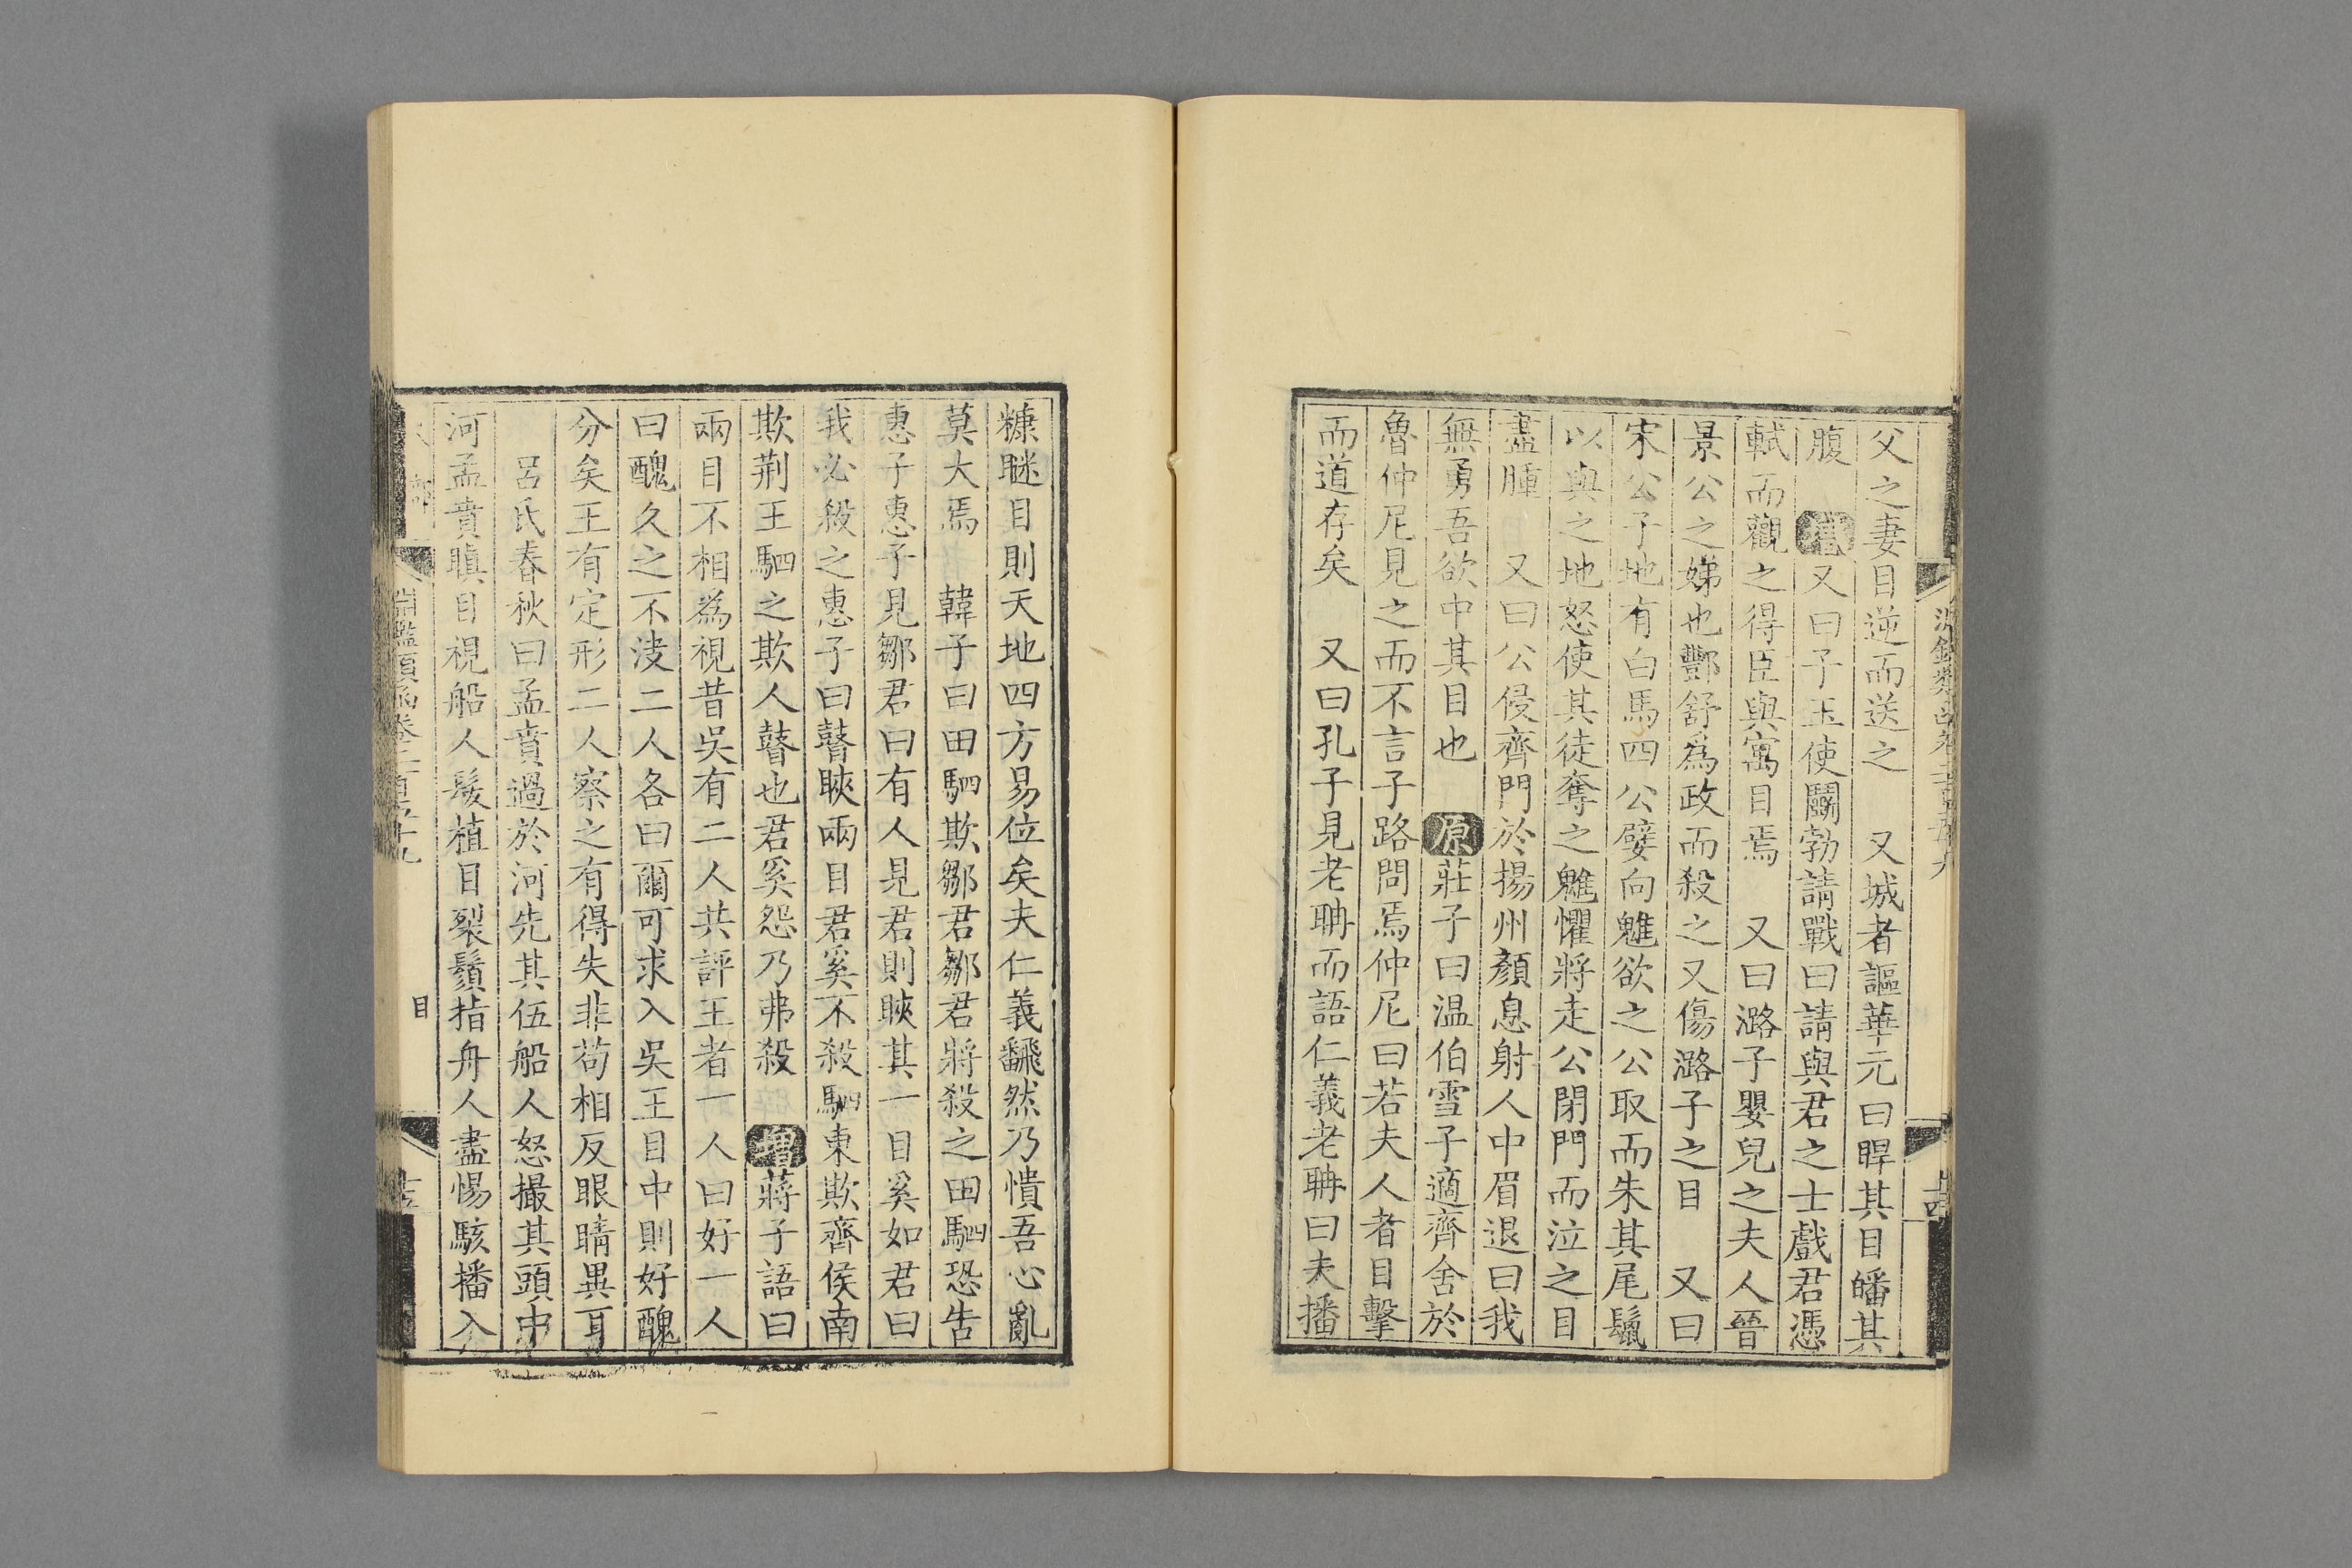 父之妻目逆而送之　又城者謳華元曰睅其目皤其
腹　增又曰子玉使鬭勃請戰曰請與君之士戲君憑
軾而觀之得臣與寓目焉　又曰潞子嬰兒之夫人晉
景公之娣也酆舒爲政而殺之又傷潞子之目　又曰
宋公子地有白馬四公嬖向魋欲之公取而朱其尾鬣
以與之地怒使其徒奪之魋懼將走公閉門而泣之目
盡腫　又曰公侵齊門於揚州顏息射人中眉退曰我
無勇吾欲中其目也　原莊子曰温伯雪子適齊舍於
魯仲尼見之而不言子路問焉仲尼曰若夫人者目擊
而道存矣　又曰孔子見老聃而語仁義老聃曰夫播
糠瞇目則天地四方易位矣夫仁義翻然乃憒吾心亂
莫大焉　韓子曰田駟欺鄒君鄒君將殺之田駟恐告
惠子惠子見鄒君曰有人見君則䀹其一目奚如君曰
我必殺之惠子曰瞽䀹兩目君奚不殺駟東欺齊侯南
欺荆王駟之欺人瞽也君奚怨乃弗殺　增蔣子語曰
兩目不相為視昔吳有二人共評王者一人曰好一人
曰醜久之不决二人各曰爾可求入吳王目中則好醜
分矣王有定形二人察之有得失非苟相反眼睛異耳
呂氏春秋曰孟賁過於河先其伍船人怒撮其頭中
河孟賁瞋目視船人髮植目裂鬚指舟人盡惕駭播入
淵鑑類函卷二百五十九
目